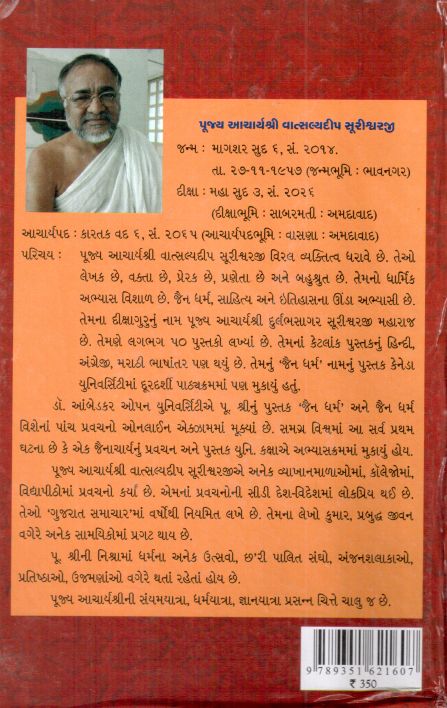 પૂજ્ય આચાર્યશ્રી વાત્સલ્યદીપ સૂરીશ્વરજી
જન્મ : માગશર સુદ ૬, સં. ૨૦૧૪.
તા. ૨૭-૧૧-૧૯૫૭ (જન્મભૂમિ : ભાવનગર)
દીક્ષા : મહા સુદ ૩, સં. ૨૦૨૬
(દીક્ષાભૂમિ : સાબરમતી : અમદાવાદ)
આચાર્યપદ : કારતક વદ ૬, સં. ૨૦૬૫ (આચાર્યપદભૂમિ : વાસણા : અમદાવાદ)
પરિચય : પૂજ્ય આચાર્યશ્રી વાત્સલ્યદીપ સૂરીશ્વરજી વિરલ વ્યક્તિત્વ ધરાવે છે. તેઓ
લેખક છે, વક્તા છે, પ્રેરક છે, પ્રણેતા છે અને બહુશ્રુત છે. તેમનો ધાર્મિક
અભ્યાસ વિશાળ છે. જૈન ધર્મ, સાહિત્ય અને ઇતિહાસના ઊંડા અભ્યાસી છે.
તેમના દીક્ષાગુરુનું નામ પૂજ્ય આચાર્યશ્રી દુર્લભસાગર સૂરીશ્વરજી મહારાજ
છે. તેમણે લગભગ ૫૦ પુસ્તકો લખ્યાં છે. તેમનાં કેટલાંક પુસ્તકનું હિન્દી,
અંગ્રેજી, મરાઠી ભાષાંતર પણ થયું છે. તેમનું ‘જૈન ધર્મ’ નામનું પુસ્તક કેનેડા
યુનિવર્સિટીમાં દૂરદર્શી પાઠ્યક્રમમાં પણ મુકાયું હતું.
ડૉ. આંબેડકર ઓપન યુનિવર્સિટીએ પૂ. શ્રીનું પુસ્તક ‘જૈન ધર્મ’ અને જૈન ધર્મ
વિશેનાં પાંચ પ્રવચનો ઓનલાઈન એક્ઝામમાં મૂક્યાં છે. સમગ્ર વિશ્વમાં આ સર્વ પ્રથમ
ઘટના છે કે એક જૈનાચાર્યનું પ્રવચન અને પુસ્તક યુનિ. કક્ષાએ અભ્યાસક્રમમાં મુકાયું હોય.
પૂજ્ય આચાર્યશ્રી વાત્સલ્યદીપ સૂરીશ્વરજીએ અનેક વ્યાખાનમાળાઓમાં, કૉલેજોમાં,
વિદ્યાપીઠોમાં પ્રવચનો કર્યાં છે. એમનાં પ્રવચનોની સીડી દેશ-વિદેશમાં લોકપ્રિય થઈ છે.
તેઓ ‘ગુજરાત સમાચાર’માં વર્ષોથી નિયમિત લખે છે. તેમના લેખો કુમાર, પ્રબુદ્ધ જીવન
વગેરે અનેક સામયિકોમાં પ્રગટ થાય છે.
પૂ. શ્રીની નિશ્રામાં ધર્મના અનેક ઉત્સવો, છ’રી પાલિત સંઘો, અંજનશલાકાઓ,
પ્રતિષ્ઠાઓ, ઉજમણાંઓ વગેરે થતાં રહેતાં હોય છે.
પૂજ્ય આચાર્યશ્રીની સંયમયાત્રા, ધર્મયાત્રા, જ્ઞાનયાત્રા પ્રસન્ન ચિત્તે ચાલુ જ છે.
9 789351 621607
₹ 350